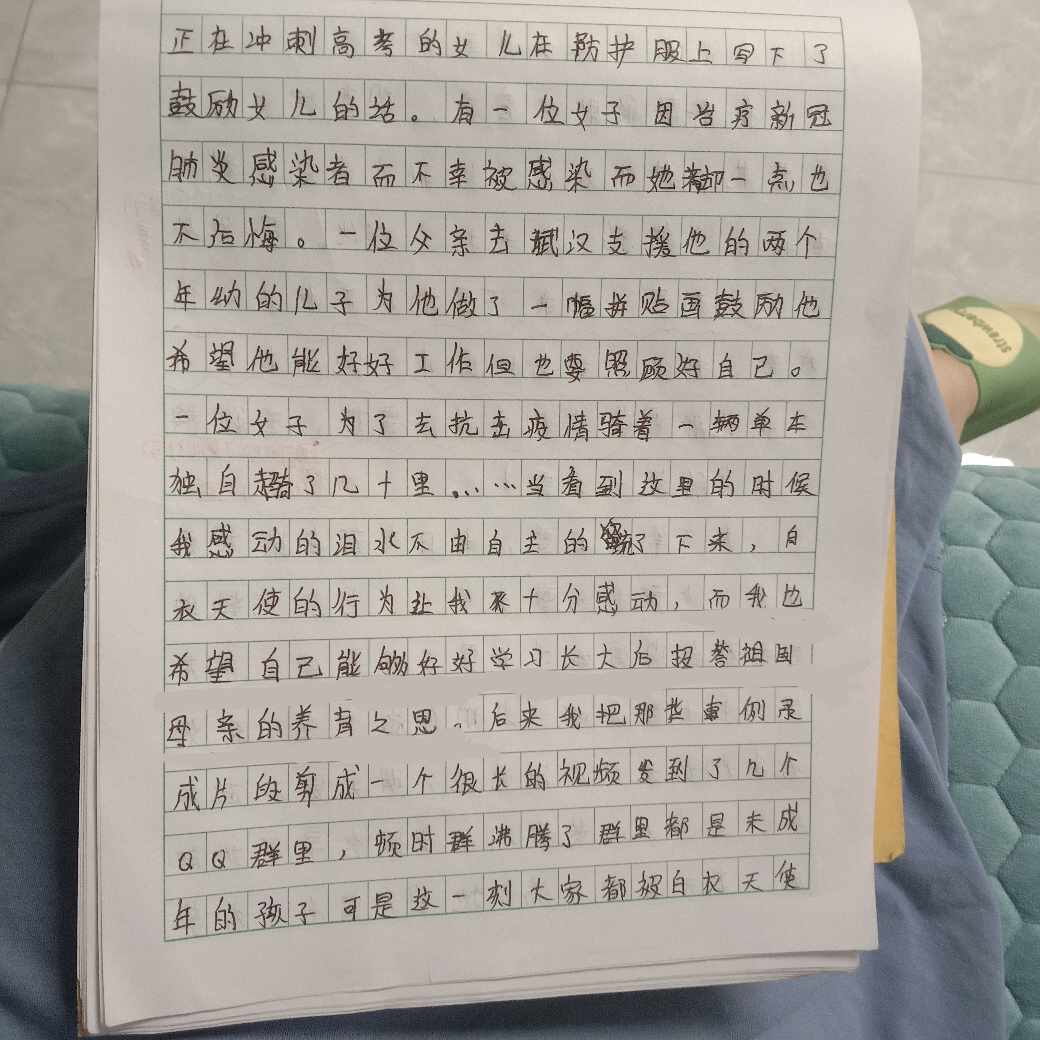 正在冲刺高考的女儿在防护服上写下了
鼓励女儿的话。有一位女子因治疗新冠
肺炎感染者而不幸被感染而她却一点也
不后悔。一位父亲去武汉支援他的两个
年幼的儿子为他做了一幅拼贴画鼓励他
希望他能好好工作但也要照顾好自己。
一位女子为了去抗击疫情骑着一辆单车
独自骑了几十里……当看到这里的时候
我感动的泪水不由自主的流了下来，白
衣天使的行为让我十分感动，而我也
希望自己能够好好学习长大后报答祖国
母亲的养育之恩。后来我把那些事例录
成片段剪成一个很长的视频发到了几个
QQ群里，顿时群沸腾了群里都是未成
年的孩子可是这一刻大家都被白衣天使
strawberry